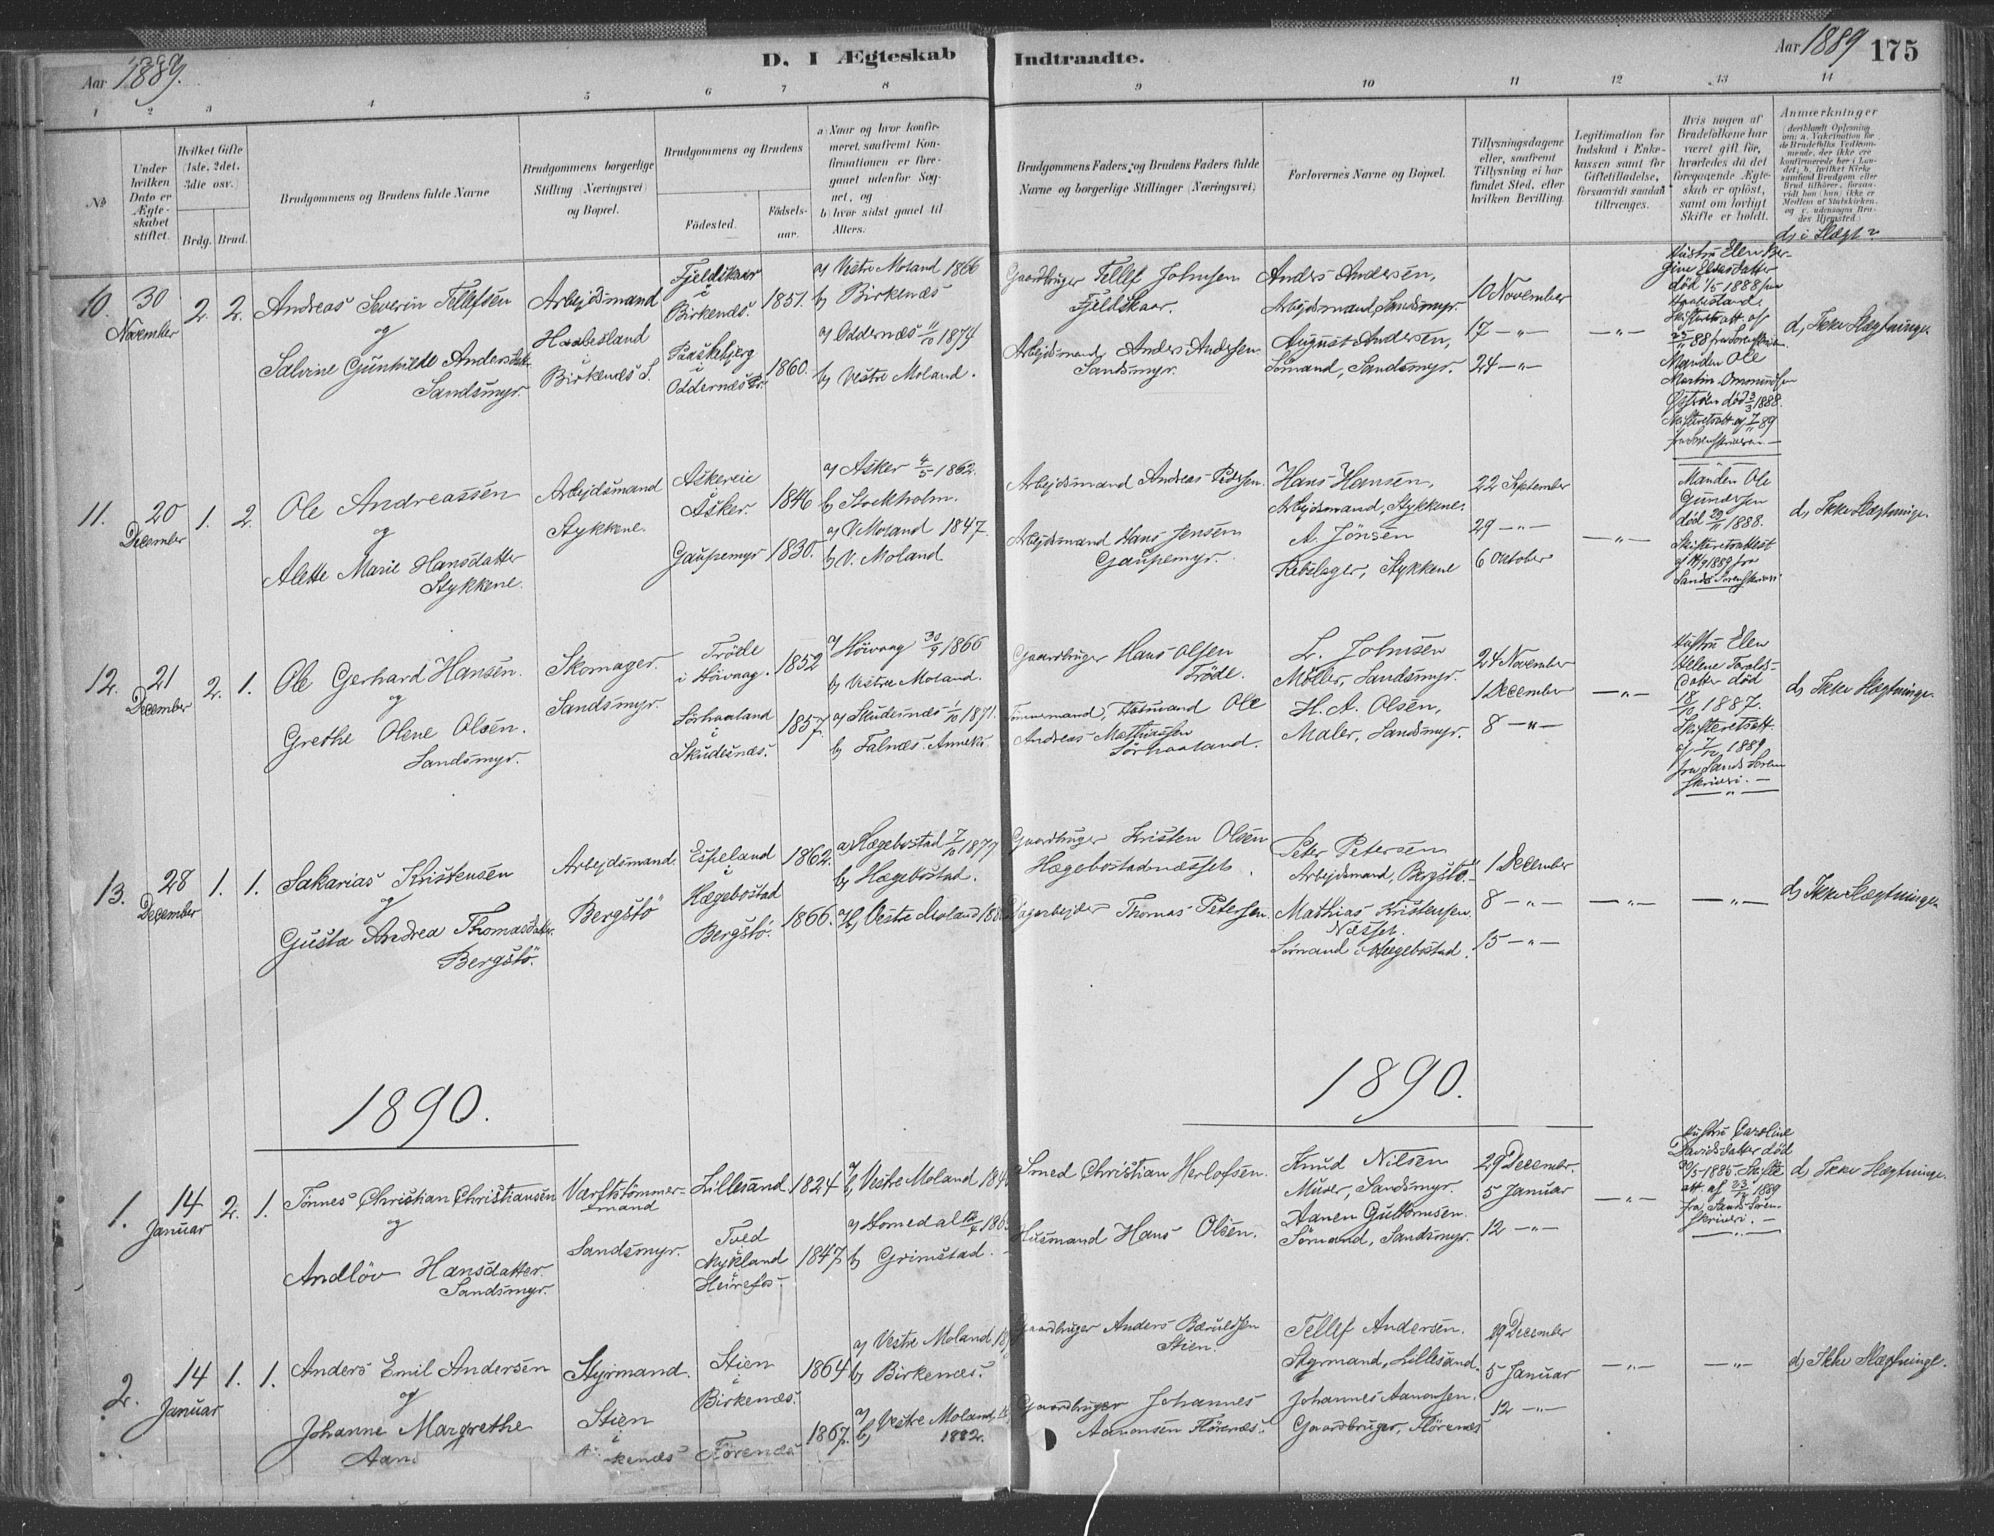 Aar 1889. D. I Ægteskab Indtraadte. Aar 1889 175
1 2 3 4 5 6 7 8 9 10 11 12 13 14
No.
Under hvilken Dato er Ægteskabet stiftet.
Hvilket Gifte (1ste, 2det, 3die osv.)
Brdg. Brud.
Brudgommens og Brudens fulde Navne
Brudgommens borgerlige Stilling (Næringsvei) og Bopæl.
Brudgommens og Brudens
Fødested. Fødselsaar.
a) Naar og hvor konfirmeret, saafremt Konfirmationen er foregaaet udenfor Sognet, og
b) hvor sidst gaaet til Alters.
Brudgommens Faders og Brudens Faders fulde Navne og borgerlige Stillinger (Næringsvei)
Forlovernes Navne og Bopæl.
Tillysningsdagene eller, saafremt Tillysning ei har fundet Sted, efter hvilken Bevilling.
Legitimation for Indskud i Enkekassen samt for Giftetilladelse, forsaavidt saadan tiltrænges.
Hvis nogen af Brudefolkene har været gift før, hvorledes da det foregaaende Ægteskab er opløst, samt om lovligt Skifte er holdt.
Anmærkninger
d) i Slægt?
10. 30 November 2. 2.
Andreas Severin Tellefsen
og
Salvine Gunhilde Andersdatter
Sandsmyr.
Arbejdsmand
Haabesland
Birkenæs S.
Fjeldskaar
i
Birkenæs. 1851.
Paaskebjerg
i
Oddernæs Pr. 1860.
a) Vestre Moland 1866
b) Birkenæs
a) Oddernæs 11/10 1874
b) Vestre Moland.
Gaardbruger Tellef Johnsen
Fjeldskaar.
Arbejdsmand Anders Andersen
Sandsmyr.
Anders Andersen,
Arbejdsmand, Sandsmyr.
August Andersen,
Sømand, Sandsmyr.
10 November
17 — „ —
24 — „ —
— „ —
Hustru Elen
død 1/5 1888
Manden Ole
Martin Omundsen
død 3/3 1888.
d) Ikke Slægtninge
11. 20 December 1. 2.
Ole Andreassen
og
Alette Marie Hansdatter
Stykkene.
Arbejdsmand
Stykkene.
Askereie
Asker. 1846
Gaupemyr 1830.
a) Asker 4/5 1862.
b) Stockholm.
a) V. Moland 1847.
b) V. Moland
Arbejdsmand Andreas Pedersen.
Arbejdsmand Hans Jensen
Gaupemyr.
Hans Hansen,
Arbejdsmand, Stykkene.
A. Jönsen
Rebslager, Stykkene
22 September
29 — „ —
6 Oktober
— „ —
Manden Ole
Gundersen
død 1888.
Skifteretsattest
af 14/9 1889 fra
Sands Sorenskriveri
d) Ikke Slægtninge.
12. 21 December 2. 1.
Ole Gerhard Hansen.
og
Grethe Olene Olsen.
Sandsmyr.
Skomager.
Sandsmyr.
Trøde
i Höivaag. 1852
Sörhaaland
i
Skudesnæs. 1857.
a) Höivaag 30/9 1866
b) Vestre Moland.
a) Skudesnæs 1/10 1871.
b) Falnæs Anneks
Gaardbruger Hans Olsen
Trøde.
Tømmermand, Husmand Ole
Andreas Mathiassen
Sørhaaland.
L. Johnsen
Møller, Sandsmyr.
H. A. Olsen,
Maler, Sandsmyr.
24 November
1 December
8 — „ —
— „ —
Hustru Elen
Helene Toralds-
datter død
18/10 1887.
Skifteretsatt.
af 1889
fra Sands Soren
skriveri. —
— „ —
d) Ikke Slægtninge.
13. 28 December 1. 1.
Sakarias Kristensen
og
Gusta Andrea Thomasdatter
Bergstö.
Arbejdsmand.
Bergstö
Espeland
i
Hægebostad 1862.
Bergstö. 1866.
a) Hægebostad 7/10 1877
b) Hægebostad.
a/b) Vestre Moland
Gaardbruger Kristen Olsen
Hægebostadnæsset.
Thomas Petersen
Peter Petersen
Arbejdsmand, Bergstö.
Mathias Kristensen
Næsset.
Sømand i Hægebostad.
1 December
8 — „ —
15 — „ —
— „ — — „ —
d) Ikke Slægtninge.
1890. 1890.
1. 14 Januar 2. 1.
Tönnes Christian Christiansen
og
Andlöv Hansdatter.
Sandsmyr.
Værftstömmer-
mand
Sandsmyr.
Lillesand 1824
Tved
Nykland
Heirefos 1847
a/b) Vestre Moland
a) Homedal
b) Grimstad.
Smed Christian Herlofsen.
Husmand Hans Olsen.
Knud Nilsen
Murer, Sandsmyr.
Aanen Guttormsen.
Sömand, Sandsmyr.
29 December.
5 Januar
12 — „ —
— „ —
Hustru Caroline
Davidsdatter død
1885 Skifte-
att. af 23/12 1889
fra Sands Soren-
skriveri. —
— „ —
d) Ikke Slægtninge
2. 14 Januar 1. 1.
Anders Emil Andersen
og
Johanne Margrethe
Styrmand.
Stien
i
Stien
i
Birkenæs. 1864
Flörenæs 1867.
a) Vestre Moland
b) Birkenæs.
a/b) Vestre Moland,
1882.
Gaardbruger Anders
Stien.
Gaardbruger Johannes
Aanonsen Flörenæs.
Tellef Andersen.
Styrmand, Lillesand.
Johannes Aanonsen.
Gaardbruger, Flörenæs
29 December
5 Januar
12 — „ —
— „ — — „ —
d) Ikke Slægtninge.